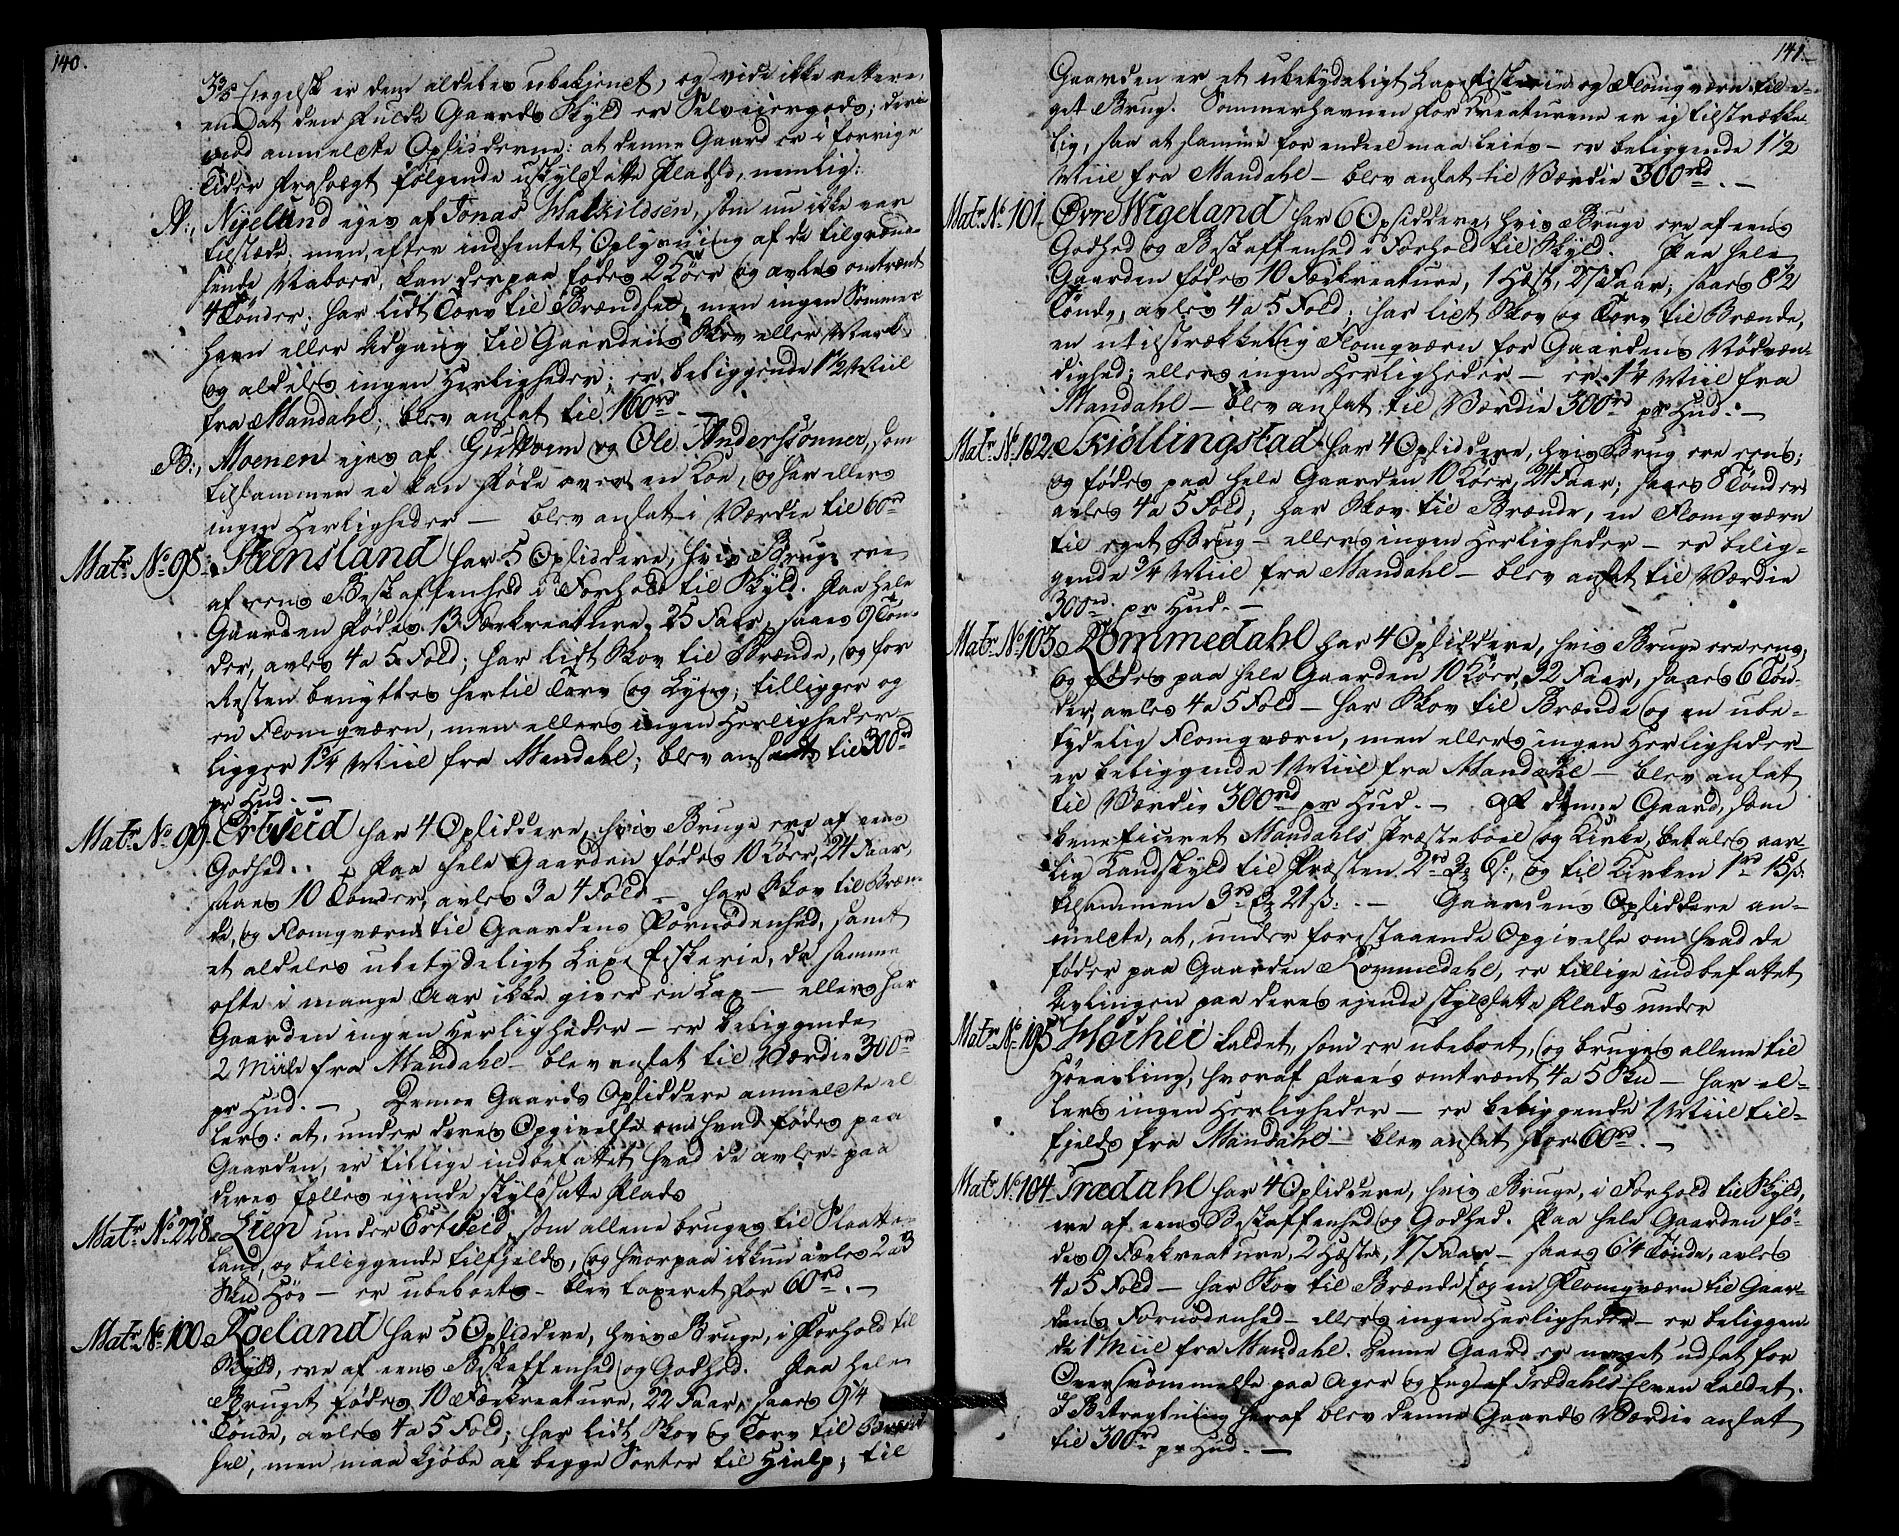 140.
er dem aldeles ubekjendt, og vide ikke rettere,
end at den fulde Gaards Skyld er Selveiergods; derimod
anmeldte Opsidderne: at denne Gaard er i forrige
Tider frasolgt følgende skyldsatte Pladse, nemlig:
A:, Nyelund ejes af Jonas Salkildsen, som nu ikke var
tilstæde; men, efter indhentet Oplysning af de tilgrænd-
sende Naboer, kan derpaa fødes 2 Köer og avles omtrent
4 Tönder; har lidt Torv til Brændsel, men ingen Sommer-
havn eller Adgang til Gaardens Skov eller Mark
og aldeles ingen Herligheder; er beliggende 1 1/2 Miil
fra Mandahl; blev ansat til 160rd. —
B:, Moenen ejes af Guttorm og Ole Anderssønner, som
tilsammen ei kan føde over en Koe, og har ellers
ingen Herligheder — blev ansat i Værdie til 60rd
Matr. No. 98. Steensland har 5 Opsiddere, hvis Bruge ere
af eens Beskaffenhed i Forhold til Skyld. Paa hele
Gaarden fødes 13 Fækreature, 25 Faar, saaes 9 Tön-
der, avles 4 a 5 Fold; har lidt Skov til Brænde, og for
Resten benyttes hertil Torv og Lyng; tilligger og
en Flomqværn, men ellers ingen Herligheder
ligger 1 3/4 Miil fra Mandahl; blev ansadt til 300rd
pr Hud. —
Matr. No. 99. Ertzeid har 4 Opsiddere, hvis Bruge ere af eens
Godhed. Paa hele Gaarden fødes 10 Köer, 24 Faar,
saaes 10 Tönder, avles 3 a 4 Fold — har Skov til Bræn-
de, og Flomqværn til Gaardens Fornödenhed, samt
et aldeles ubetydeligt Laxefiskerie, da samme
ofte i mange Aar ikke giver en Lax — ellers har
Gaarden ingen Herligheder — er beliggende
2 Miile fra Mandahl — blev ansat til Værdie 300rd
pr Hud. — Denne Gaards Opsiddere anmeldte el-
lers: at, under deres Opgivelse om hvad fødes paa
Gaarden, er tillige indbefattet hvad de avler paa
deres fælles ejende skyldsatte Plads
Matr. No. 228. Lien under Ertzeid, som allene bruges til Slaatte-
land, og beliggende tilfjelds, og hvorpaa ikkun avles 2 a 3
Skd Höe — er ubeboet — blev taxeret for 60rd. —
Matr. No. 100. Roeland har 5 Opsiddere, hvis Bruge, i Forhold til
Skyld, ere af eens Beskaffenhed og Godhed. Paa hele
Bruget fødes 10 Fækreature, 22 Faar, saaes 9 1/4
Tönde, avles 4 a 5 Fold; har lidt Skov og Torv til Brænd-
sel, men maa kjöbe af begge Sorter til Hielp; til
141.
Gaarden er et ubetydeligt Laxefiskerie og Flomqværn til e-
get Brug. Sommerhavnen for Creaturene er ej tilstrække-
lig, saa at samme for endeel maa leies — er beliggende 1 1/2
Miil fra Mandahl — blev ansat til Værdie 300rd. —
Matr. No. 101. Øvre Wigeland har 6 Opsiddere, hvis Bruge ere af eens
Godhed og Beskaffenhed i Forhold til Skyld. Paa hele
Gaarden fødes 10 Fækreature, 1 Hæst, 27 Faar; saaes 8 1/2
Tönde, avles 4 a 5 Fold; har lidt Skov og Torv til Brænde,
en utilstrækkelig Flomqværn for Gaardens Nödven-
dighed; ellers ingen Herligheder — er 1 1/4 Miil fra
Mandahl — blev ansat til Værdie 300rd pr Hud. —
Matr. No. 102. Skiöllingstad har 4 Opsiddere, hvis Brug ere eens;
og fødes paa hele Gaarden 10 Köer, 24 Faar; saaes 8 Tönder
avles 4 a 5 Fold; har Skov til Brænde, en Flomqværn
til eget Brug — ellers ingen Herligheder — er belig-
gende 3/4 Miil fra Mandahl — blev ansat til Værdie
300rd. pr Hud. —
Matr. No. 103. Rommedahl har 4 Opsiddere, hvis Bruge ere eens,
og fødes paa hele Gaarden 10 Köer, 32 Faar, saaes 6 Tön-
der, avles 4 a 5 Fold — har Skov til Brænde og en ube-
tydelig Flomqværn, men ellers ingen Herligheder —
er beliggende 1 Miil fra Mandahl — blev ansat
til Værdie 300rd pr Hud. — Af denne Gaard, som
beneficeret Mandahls Præsteboel og Kirke, betales aar-
lig Landskyld til Præsten 2rd og til Kirken 1rd 15s:
tilsammen 3rd 21s:. — Gaardens Opsiddere an-
meldte, at, under forestaaende Opgivelse om hvad de
føder paa Gaarden Rommedahl, er tillige indbefattet
Avlingen paa deres ejende skyldsatte Plads under
Matr. No. 105 Höehei kaldet, som er ubeboet, og bruges allene til
Höeavling, hvoraf faaes omtrent 4 a 5 Skd — har el-
lers ingen Herligheder — er beliggende 1 Miil til-
fjelds fra Mandahl — blev ansat for 60rd. —
Matr. No. 104. Trædahl har 4 Opsiddere, hvis Bruge, i Forhold til Skyld,
ere af eens Beskaffenhed og Godhed. Paa hele Gaarden fö-
des 9 Fækreature, 2 Hæste, 17 Faar — saaes 6 1/4 Tönde, avles
4 a 5 Fold — har Skov til Brænde, og en Flomqværn til Gaar-
dens Fornödenhed — ellers ingen Herligheder — er beliggen-
de 1 Miil fra Mandahl. Denne Gaard er meget udsat for
Oversvömmelse paa Ager og Eng af Trædahls Elven kaldet.
I Betragtning heraf blev denne Gaards Værdie ansat
til 300rd pr Hud. —